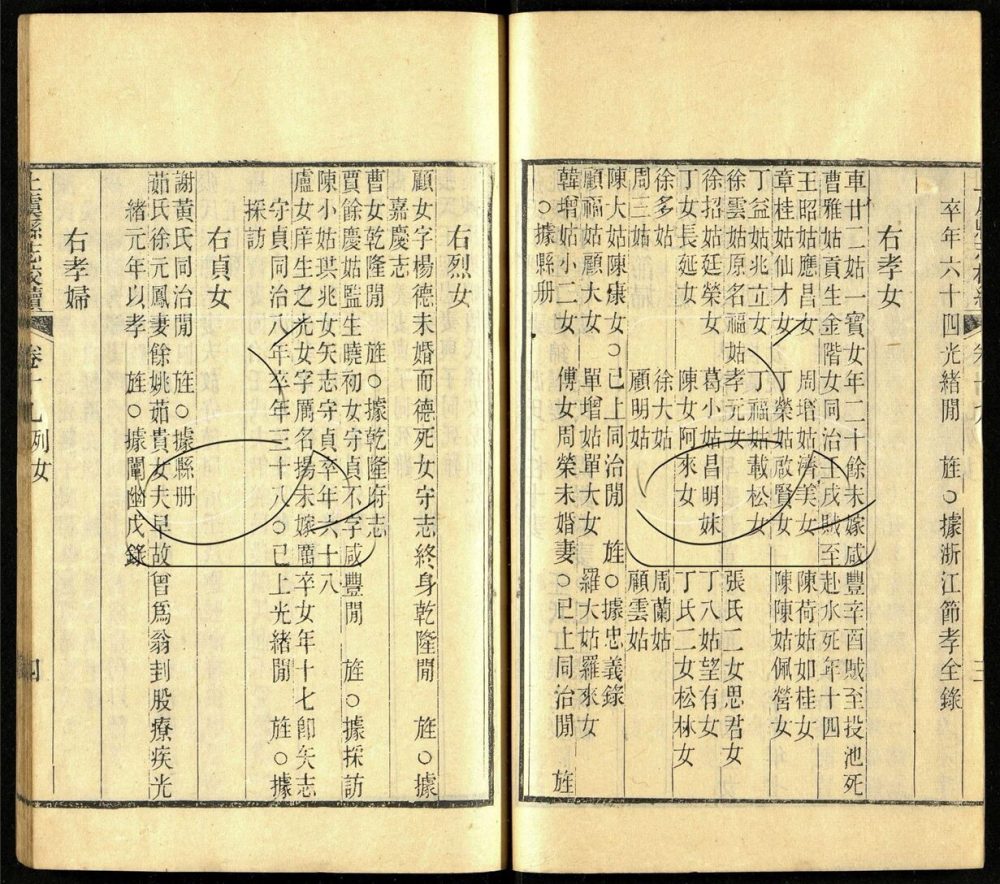 卒年六十四光緒閒 旌○據浙江節孝全錄
右孝女
車廿二姑一寶女年二十餘未嫁咸豐辛酉賊至投池死
曹雅姑貢生金階女同治壬戌賊至赴水死年十四
王昭姑應昌女 周增姑濟美女 陳荷姑如桂女
章桂姑仙才女 丁榮姑啟賢女 陳陳姑佩營女
丁益姑兆立女 丁福姑載松女
徐雲姑原名福姑孝元女 張氏二女思君女
徐招姑廷榮女 葛小姑昌明妹 丁八姑望有女
丁女長延女 陳女阿來女 丁氏二女松林女
徐多姑 徐大姑 周蘭姑
周三姑 顧明姑 顧雲姑
陳大姑陳康女○已上同治閒 旌○據忠義錄
顧福姑顧大女 單增姑單大女 羅大姑羅來女
韓增姑小二女 傅女周榮未婚妻○已上同治閒 旌
○據縣册
右烈女
顧女字楊德未婚而德死女守志終身乾隆閒 旌○據
嘉慶志
曹女乾隆閒 旌○據乾隆府志
賈餘慶姑監生曉初女守貞不字咸豐閒 旌○據採訪
陳小姑琪兆女矢志守貞卒年六十八
盧女庠生之光女字厲名揚未嫁厲卒女年十七卽矢志
守貞同治八年卒年三十八○已上光緒閒 旌○據
採訪
右貞女
謝黃氏同治閒 旌○據縣册
茹氏徐元鳳妻餘姚茹貴女夫早故曾爲翁刲股療疾光
緒元年以孝 旌○據闡幽戊錄
右孝婦
上虞縣志校續 卷十九 列女 四